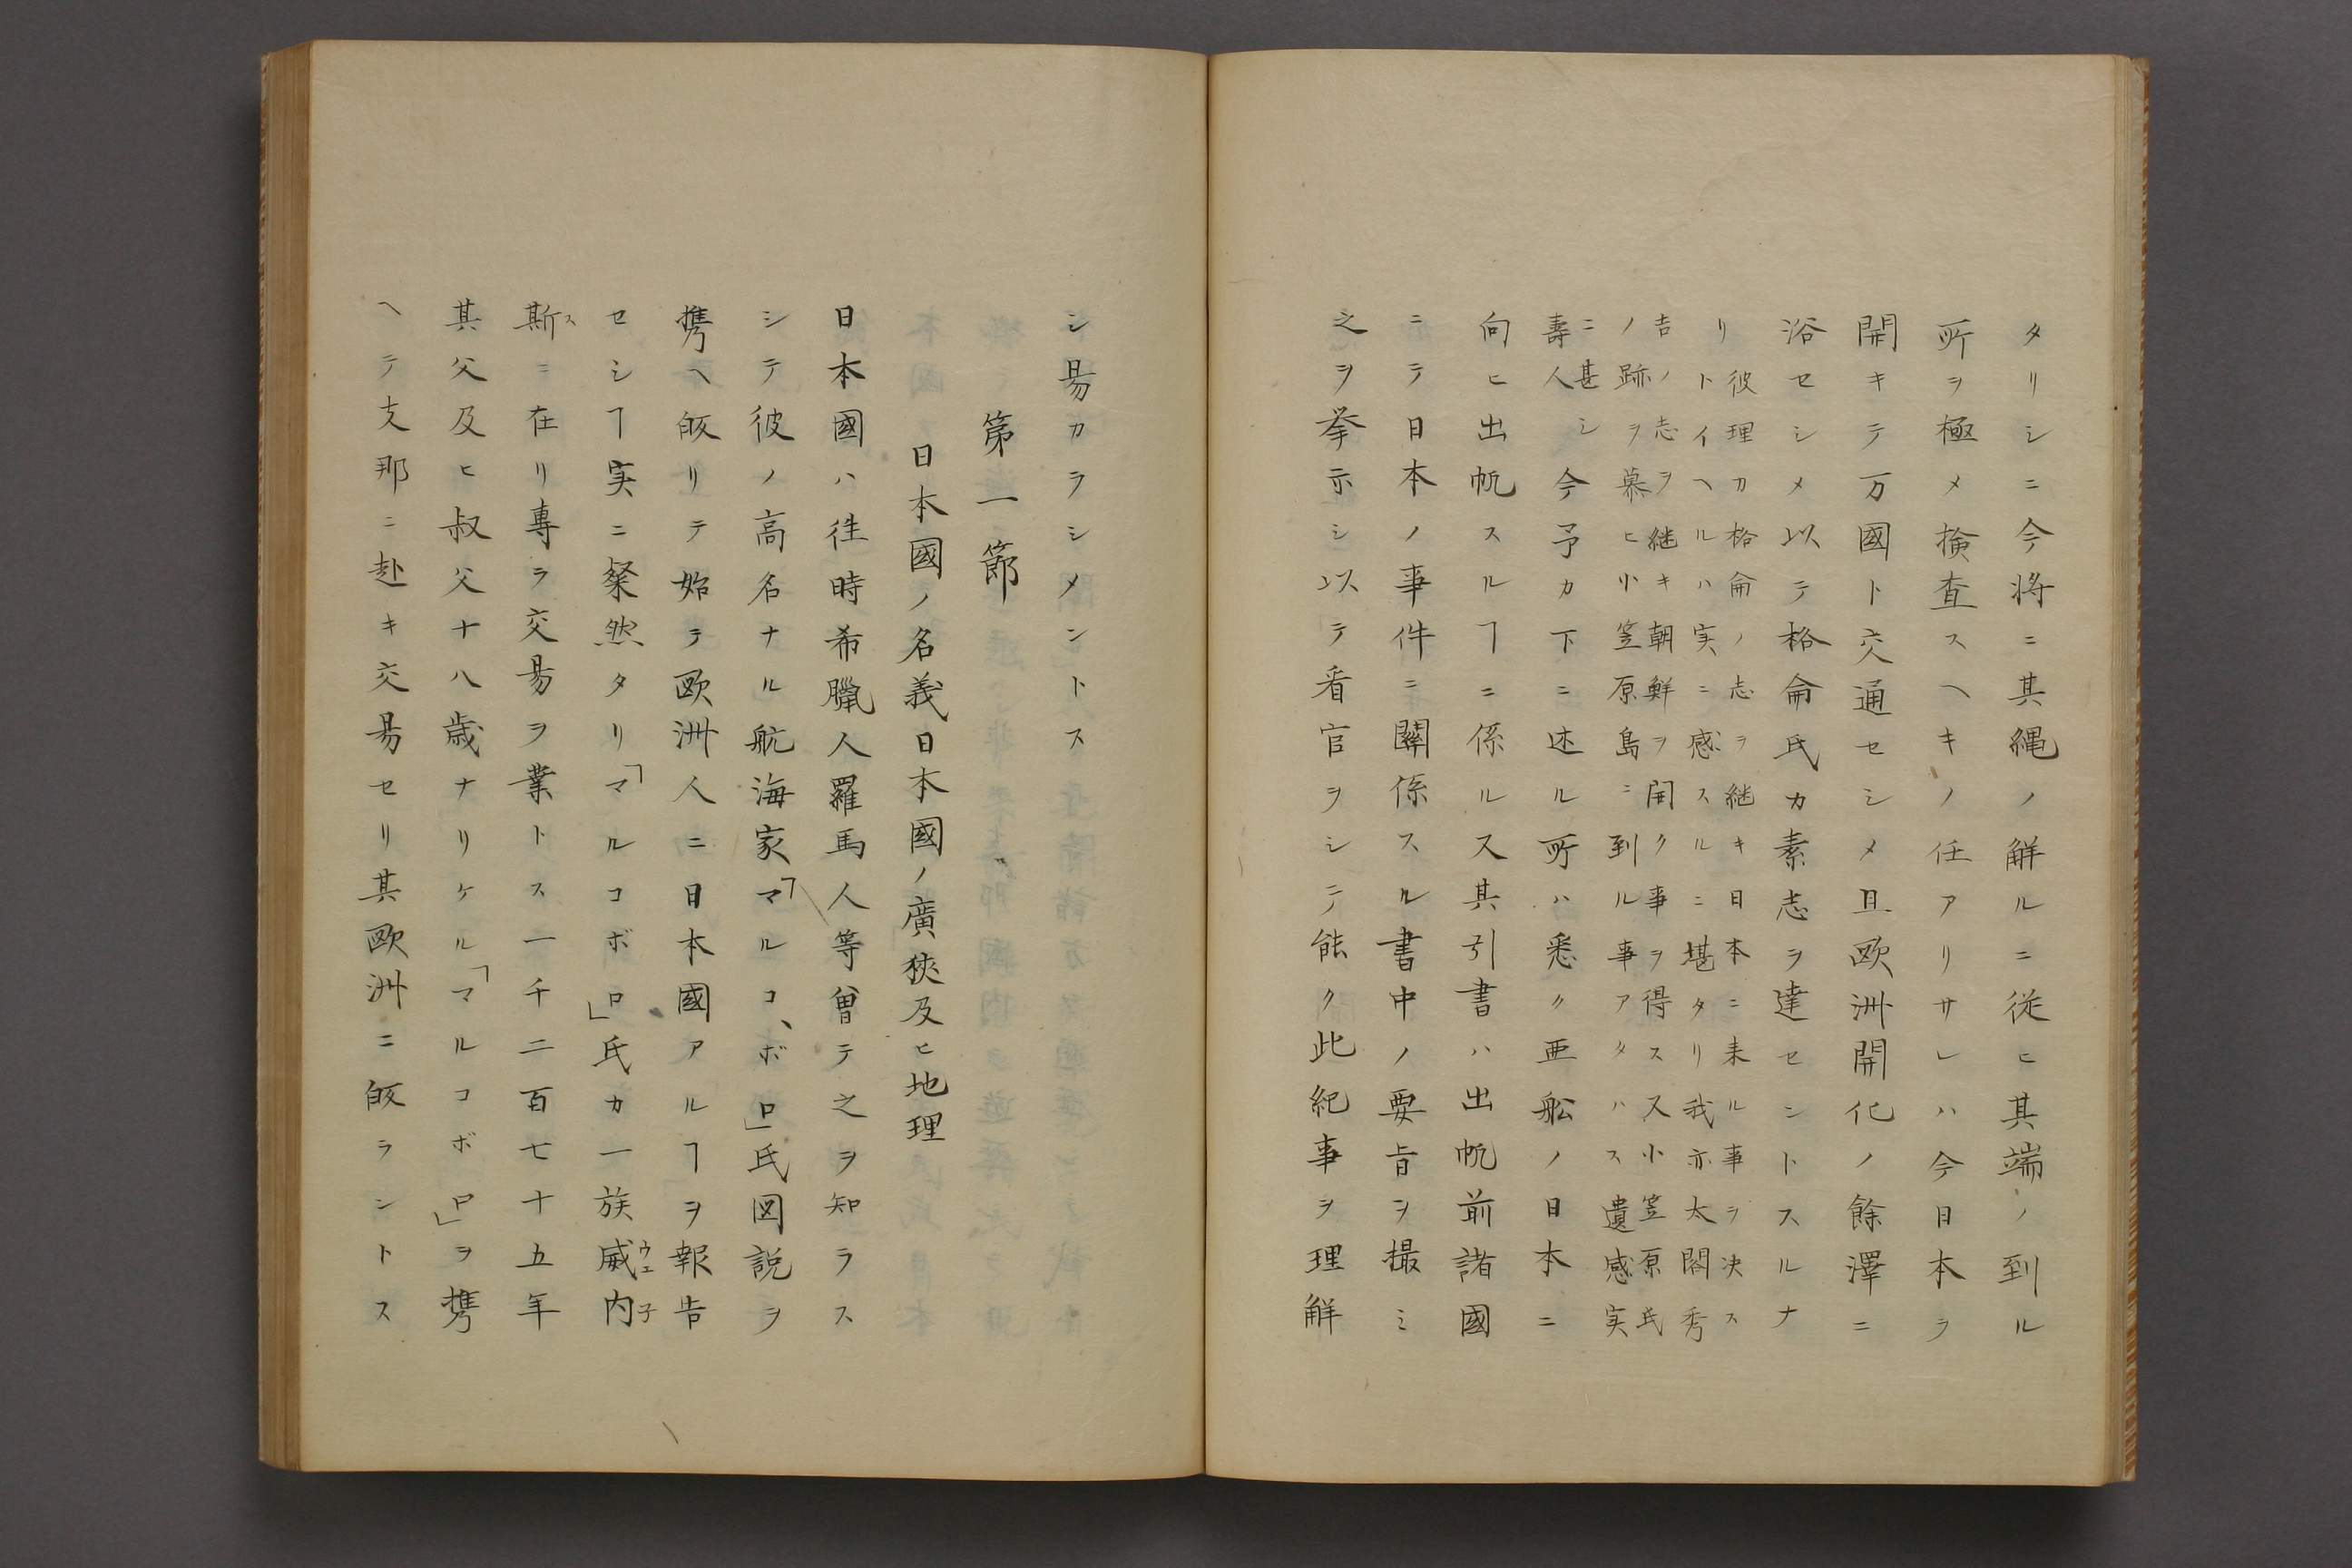 タリシニ今将ニ其縄ノ解ルニ従ヒ其端ノ到ル
所ヲ極メ撿査スヘキノ任アリサレハ今日本ヲ
開キテ万國ト交通セシメ且欧洲開化ノ餘澤ニ
浴セシメ以テ格侖氏カ素志ヲ達セントスルナ
リ彼理カ格侖ノ志ヲ継キ日本ニ来ル事ヲ决ス
トイヘルハ実ニ感スルニ堪タリ我亦太閤秀
吉ノ志ヲ継キ朝鮮ヲ開ク事ヲ得ス又小笠原氏
ノ跡ヲ慕ヒ小笠原島ニ到ル事アタハス遺感実
ニ甚シ
壽人今予カ下ニ述ル所ハ悉ク亜舩ノ日本ニ
向ヒ出帆スルヿニ係ル又其引書ハ出帆前諸國
ニテ日本ノ事件ニ關係スル書中ノ要旨ヲ撮ミ
之ヲ挙示シ以テ看官ヲシテ能ク此紀事ヲ理解
シ易カラシメントス
第一節
日本國ノ名義日本國ノ廣狹及ヒ地理
日本國ハ徃時希臘人羅馬人等曽テ之ヲ知ラス
シテ彼ノ高名ナル航海家「マルコ、ボロ」氏図説ヲ
携ヘ皈リテ始テ欧洲人ニ日本國アルヿヲ報告
セシヿ実ニ粲然タリ「マルコボロ」氏カ一族威内
ウエ子
斯ニ在リ專ラ交易ヲ業トス一千二百七十五年
ス
其父及ヒ叔父十八歳ナリケル「マルコボロ」ヲ携
ヘテ支那ニ赴キ交易セリ其欧洲ニ皈ラントス